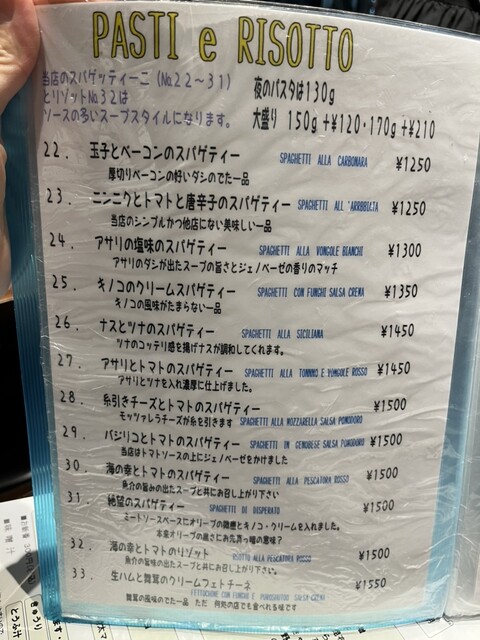 PASTI e RISOTTO
当店のスパゲッティーニ (No22～31)
とリゾットNo32は
ソースの多いスープスタイルになります。
夜のパスタは130g
大盛り 150g +¥120・170g +¥210
22. 玉子とベーコンのスパゲティー SPAGHETTI ALLA CARBONARA ¥1250
厚切りベーコンの好いダシのでた一品
23. ニンニクとトマトと唐辛子のスパゲティー SPAGHETTI ALL 'ARRBBIATA ¥1250
当店のシンプルかつ他店にない美味しい一品
24. アサリの塩味のスパゲティー SPAGHETTI ALLA VONGOLE BIANCHI ¥1300
アサリのダシが出たスープの旨さとジェノベーゼの香りのマッチ
25. キノコのクリームスパゲティー SPAGHETTI CON FUNGHI SALSA CREMA ¥1350
キノコの風味がたまらない一品
26. ナスとツナのスパゲティー SPAGHETTI ALLA SICILIANA ¥1450
ツナのコッテリ感を揚げナスが調和してくれます。
27. アサリとトマトのスパゲティー SPAGHETTI ALLA TONNNO E VONGOLE ROSSO ¥1450
アサリとツナを入れ濃厚に仕上げました。
28. 糸引きチーズとトマトのスパゲティー ¥1500
モッツァレラチーズが糸を引きます SPAGHETTI ALLA MOZZARELLA SALSA POMODORO
29. バジリコとトマトのスパゲティー SPAGHETTI IN GENOBESE SALSA POMODORO ¥1500
当店はトマトソースの上にジェノベーゼをかけました
30. 海の幸とトマトのスパゲティー SPAGHETTI ALLA PESCATURA ROSSO ¥1500
魚介の旨みの出たスープと共にお召し上がり下さい
31. 絶望のスパゲティー SPAGHETTI DI DISPERATO ¥1500
ミートソースベースにオリーブの微塵とキノコ・クリームを入れました。
本来オリーブの黒さにお先真っ暗の意味?
32. 海の幸とトマトのリゾット RISOTTO ALLA PESCATURA ROSSO ¥1500
魚介の旨味の出たスープと共にお召し上がり下さい。
33. 生ハムと舞茸のクリームフェトチーネ ¥1550
FETTUCHINE CON FUNGHI E PUROSHUTDO SALSA CREMA
舞茸の風味のでた一品 ただ 何処の店でも食べれる味です
きゅうり
とうふサ